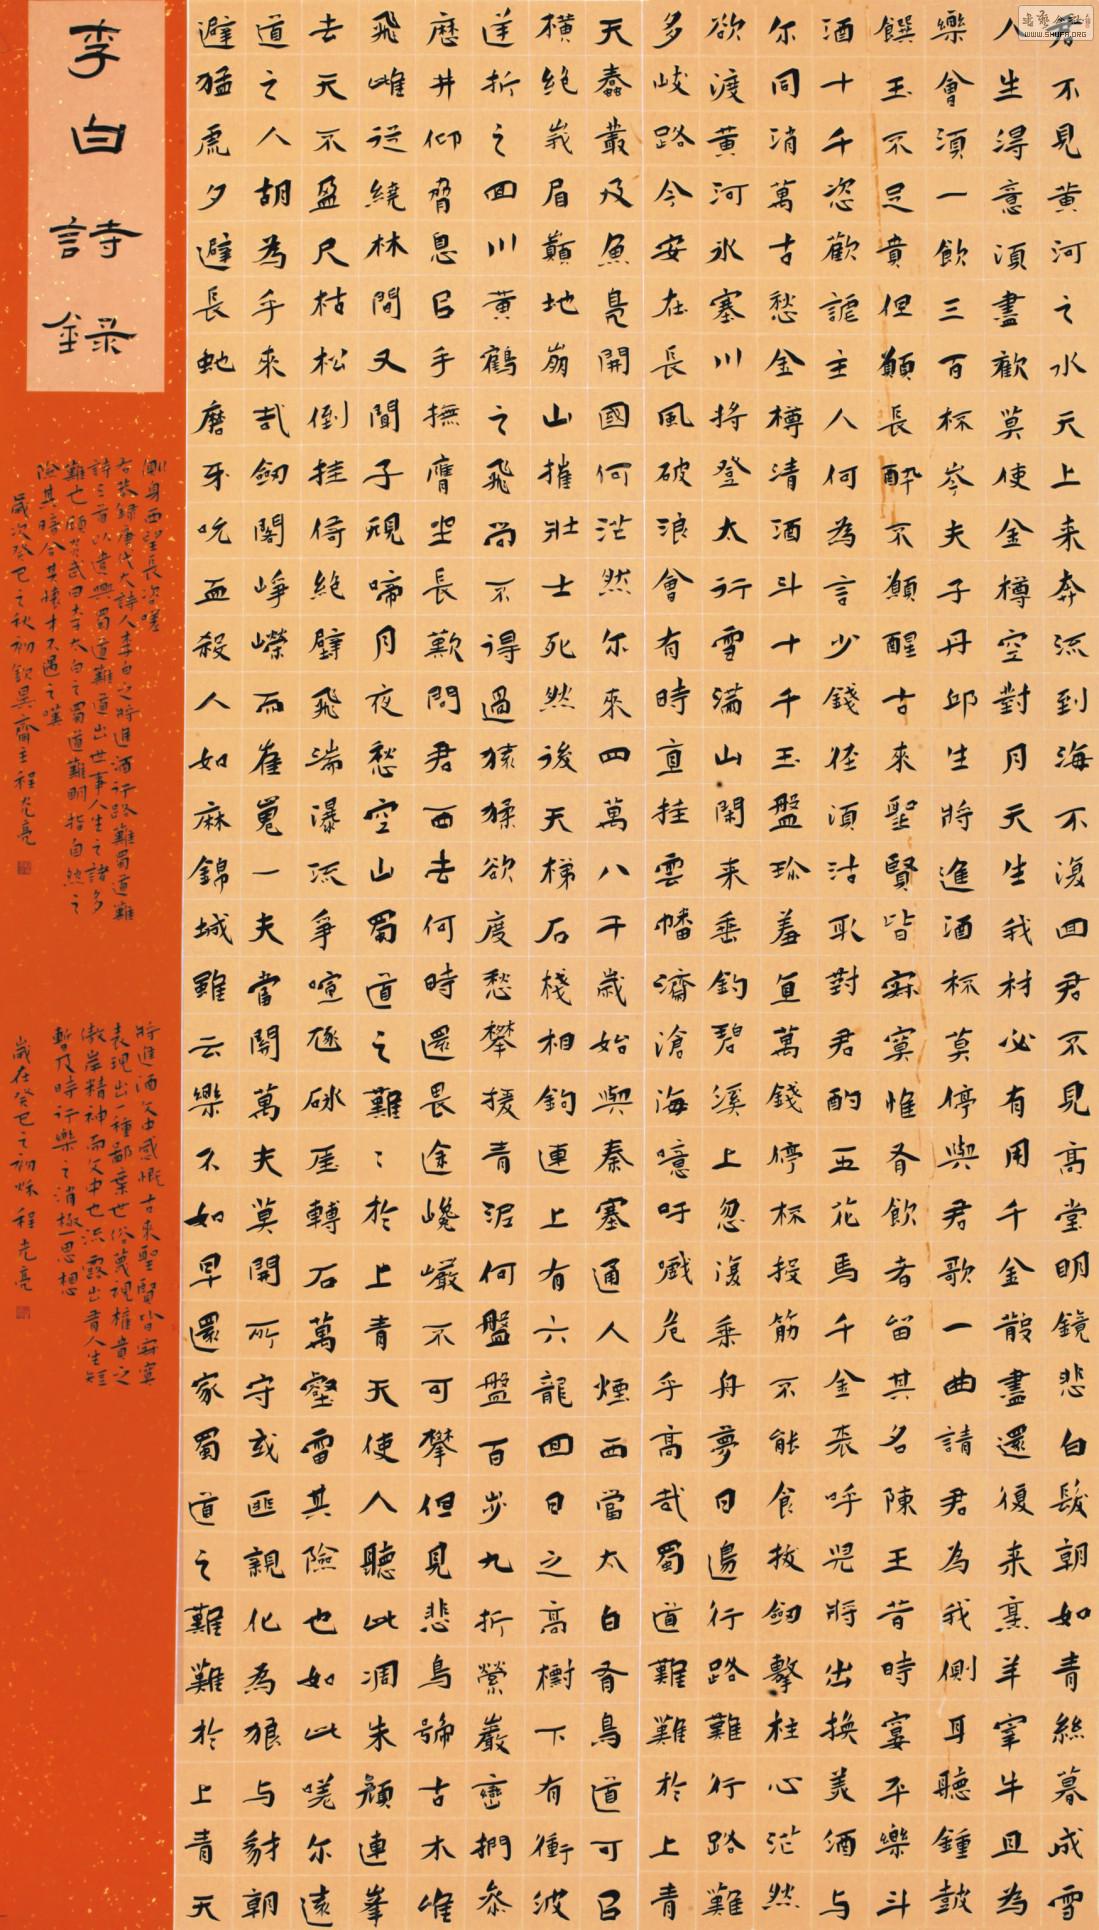 君不見黃河之水天上来奔流到海不復回君不見高堂明鏡悲白髮朝如青絲暮成雪
人生得意須盡歡莫使金樽空對月天生我材必有用千金散盡還復来烹羊宰牛且為
樂會須一飲三百杯岑夫子丹邱生將進酒杯莫停與君歌一曲請君為我側耳聽鍾鼓
饌玉不足貴但願長醉不願醒古來聖賢皆寂寞惟有飲者留其名陳王昔時宴平樂斗
酒十千恣歡謔主人何為言少錢徑須沽取對君酌五花馬千金裘呼兒將出換美酒与
尔同消萬古愁金樽清酒斗十千玉盤珍羞直萬錢停杯投筯不能食拔劒擊柱心茫然
欲渡黃河氷塞川將登太行雪滿山閑来垂釣碧溪上忽復乘舟夢日邊行路難行路難
多岐路今安在長風破浪會有時直挂雲幡濟滄海噫吁嚱危乎高哉蜀道難難於上青
天蠶叢及魚鳧開國何茫然尔來四萬八千歲始與秦塞通人煙西當太白有鳥道可㠯
橫絕峩眉巔地崩山摧壯士死然後天梯石棧相鉤連上有六龍回日之高標下有衝波
逆折之回川黃鶴之飛尚不得過猿猱欲度愁攀援青泥何盤盤百步九折縈巖巒捫參
歷井仰脅息㠯手撫膺坐長歎問君西去何時還畏途巉巖不可攀但見悲鳥號古木雄
飛雌從繞林間又聞子規啼月夜愁空山蜀道之難〻於上青天使人聽此凋朱顏連峯
去天不盈尺枯松倒挂倚絕壁飛湍瀑流爭喧豗砯厓轉石萬壑雷其險也如此嗟尔遠
道之人胡為乎來哉劒閣崢嶸而崔嵬一夫當關萬夫莫開所守或匪親化為狼与豺朝
避猛虎夕避長蛇磨牙吮血殺人如麻錦城雖云樂不如早還家蜀道之難難於上青天
李白詩錄
側身西望長咨嗟
右恭録唐代大詩人李白之將進酒行路難蜀道難
詩三首以遣興蜀道難道出世事人生之諸多
難也顧炎武曰李太白之蜀道難明指自然之
險其暗合其懷才不遇之嘆
歲次癸巳之秋初飲昊齋主程光亮
將進酒文中感慨古來聖賢皆寂寞
表現出一種鄙棄世俗蔑視權貴之
傲岸精神而文中也流露出有人生短
暫及時行樂之消極思想
歲在癸巳之初秋程光亮
www.SHUFA.ORG